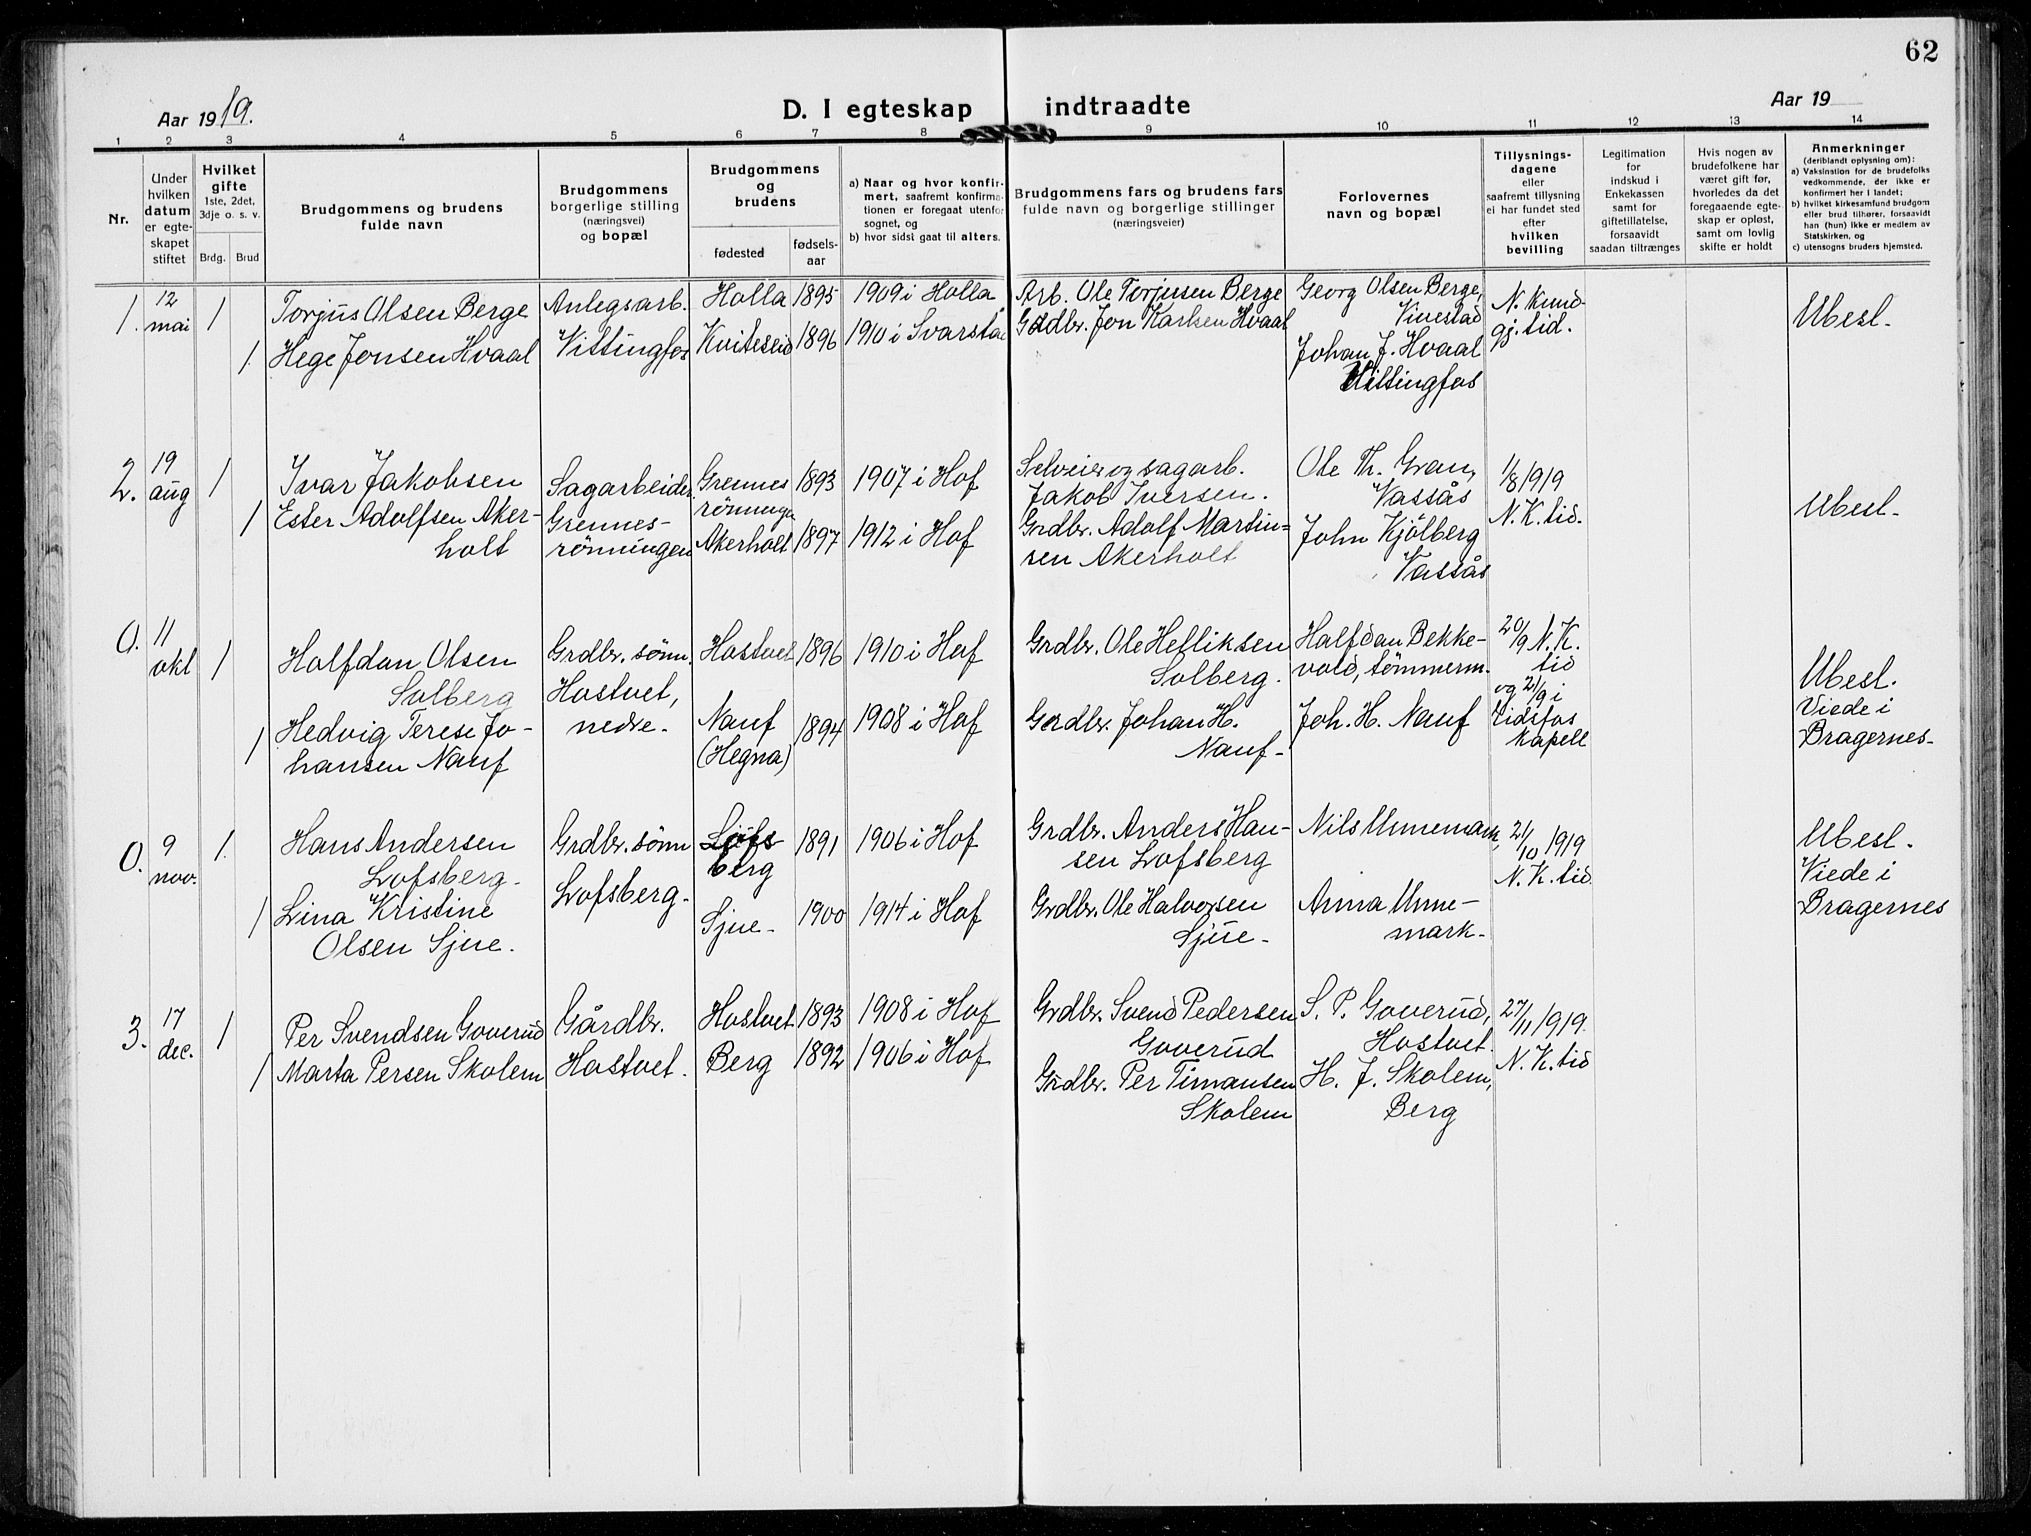 62
Aar 1919.
D. I egteskap indtraadte
Aar 19
1 2 3 4 5 6 7 8 9 10 11 12 13 14
Nr.
Under
hvilken
datum
er egte-
skapet
stiftet
Hvilket
gifte
1ste, 2det,
3dje o. s. v.
Brdg. Brud
Brudgommens og brudens
fulde navn
Brudgommens
borgerlige stilling
(næringsvei)
og bopæl
Brudgommens
og
brudens
fødested
fødsels-
aar
a) Naar og hvor konfir-
mert, saafremt konfirma-
tionen er foregaat utenfor
sognet, og
b) hvor sidst gaat til alters.
Brudgommens fars og brudens fars
fulde navn og borgerlige stillinger
(næringsveier)
Forlovernes
navn og bopæl
Tillysnings-
dagene
eller
saafremt tillysning
ei har fundet sted
efter
hvilken
bevilling
Legitimation
for
indskud i
Enkekassen
samt for
giftetillatelse,
forsaavidt
saadan tiltrænges
Hvis nogen av
brudefolkene har
været gift før,
hvorledes da det
foregaaende egte-
skap er opløst,
samt om lovlig
skifte er holdt
Anmerkninger
(deriblandt oplysning om):
a) Vaksinstion for de brudefolks
vedkommende, der ikke er
konfirmert her i landet;
b) hvilket kirkesamfund brudgom
eller brud tilhører, forsaavidt
han (hun) ikke er medlem av
Statskirken, og
c) utensogns bruders hjemsted.
1.
12
mai
1
1.
Torjus Olsen Berge
Hege Jonsen Hvaal
Anlegsarb.
Vittingfos
Holla
Kviteseid
1895
1896
1909 i Holla
1910 i Svarstad
Arb. Ole Torjusen Berge
Grdbr. Jon Karlsen Hvaal
Georg Olsen Berge,
Vivestad
Johan J. Hvaal
Vittingfos
N. Kund-
gj. tid.
Ubesl.
2.
19
aug
1
1
Ivar Jakobsen
Ester Adolfsen Aker-
holt
Sagarbeider
Grennes-
rönningen
Grennes
rönningen
Akerholt
1893
1897
1907 i Hof
1912 i Hof
Selveier og sagarb.
Jakob Iversen.
Grdbr. Adolf Martin-
sen Akerholt
Ole Th. Gran,
Vassås
John Kjölberg
Vassås
1/8 1919
N. K. tid.
Ubesl.
0.
11
okt
1
1
Halfdan Olsen
Solberg
Hedvig Terese Jo-
hansen Nauf
Grdbr. sønn.
Hostvet,
nedre.
Hostvet
Nauf
(Hegna)
1896
1894
1910 i Hof
1908 i Hof
Grdbr. Ole Helliksen
Solberg.
Gardbr. Johan H.
Nauf.
Halfdan Bekke-
vold, tømmerm.
Joh. H. Nauf
20/9 N. K.
tid
og 21/9 i
Eidsfos
kapell
Ubesl.
Viede i
Bragernes.
0.
9
nov.
1.
1
Hans Andersen
Lofsberg.
Lina Kristine
Olsen Sjue.
Grdbr. sønn
Lofsberg.
Lofs-
berg
Sjue.
1891
1900
1906 i Hof
1914 i Hof
Grdbr. Anders Han-
sen Lofsberg
Grdbr. Ole Halvorsen
Sjue.
Nils Unnemark,
Anna Unne-
mark.
21/10 1919
N. K. tid.
Ubesl.
Viede i
Bragernes
3.
17
dec.
1
1
Per Svendsen Goverud
Marta Persen Skolem
Gårdbr.
Hostvet.
Hostvet
Berg
1893
1892
1908 i Hof
1906 i Hof
Grdbr. Svend Pedersen
Goverud
Grdbr. Per Timansen
Skolem
S. P. Goverud,
Hostvet.
H. J. Skolem,
Berg
27/11 1919.
N. K. tid